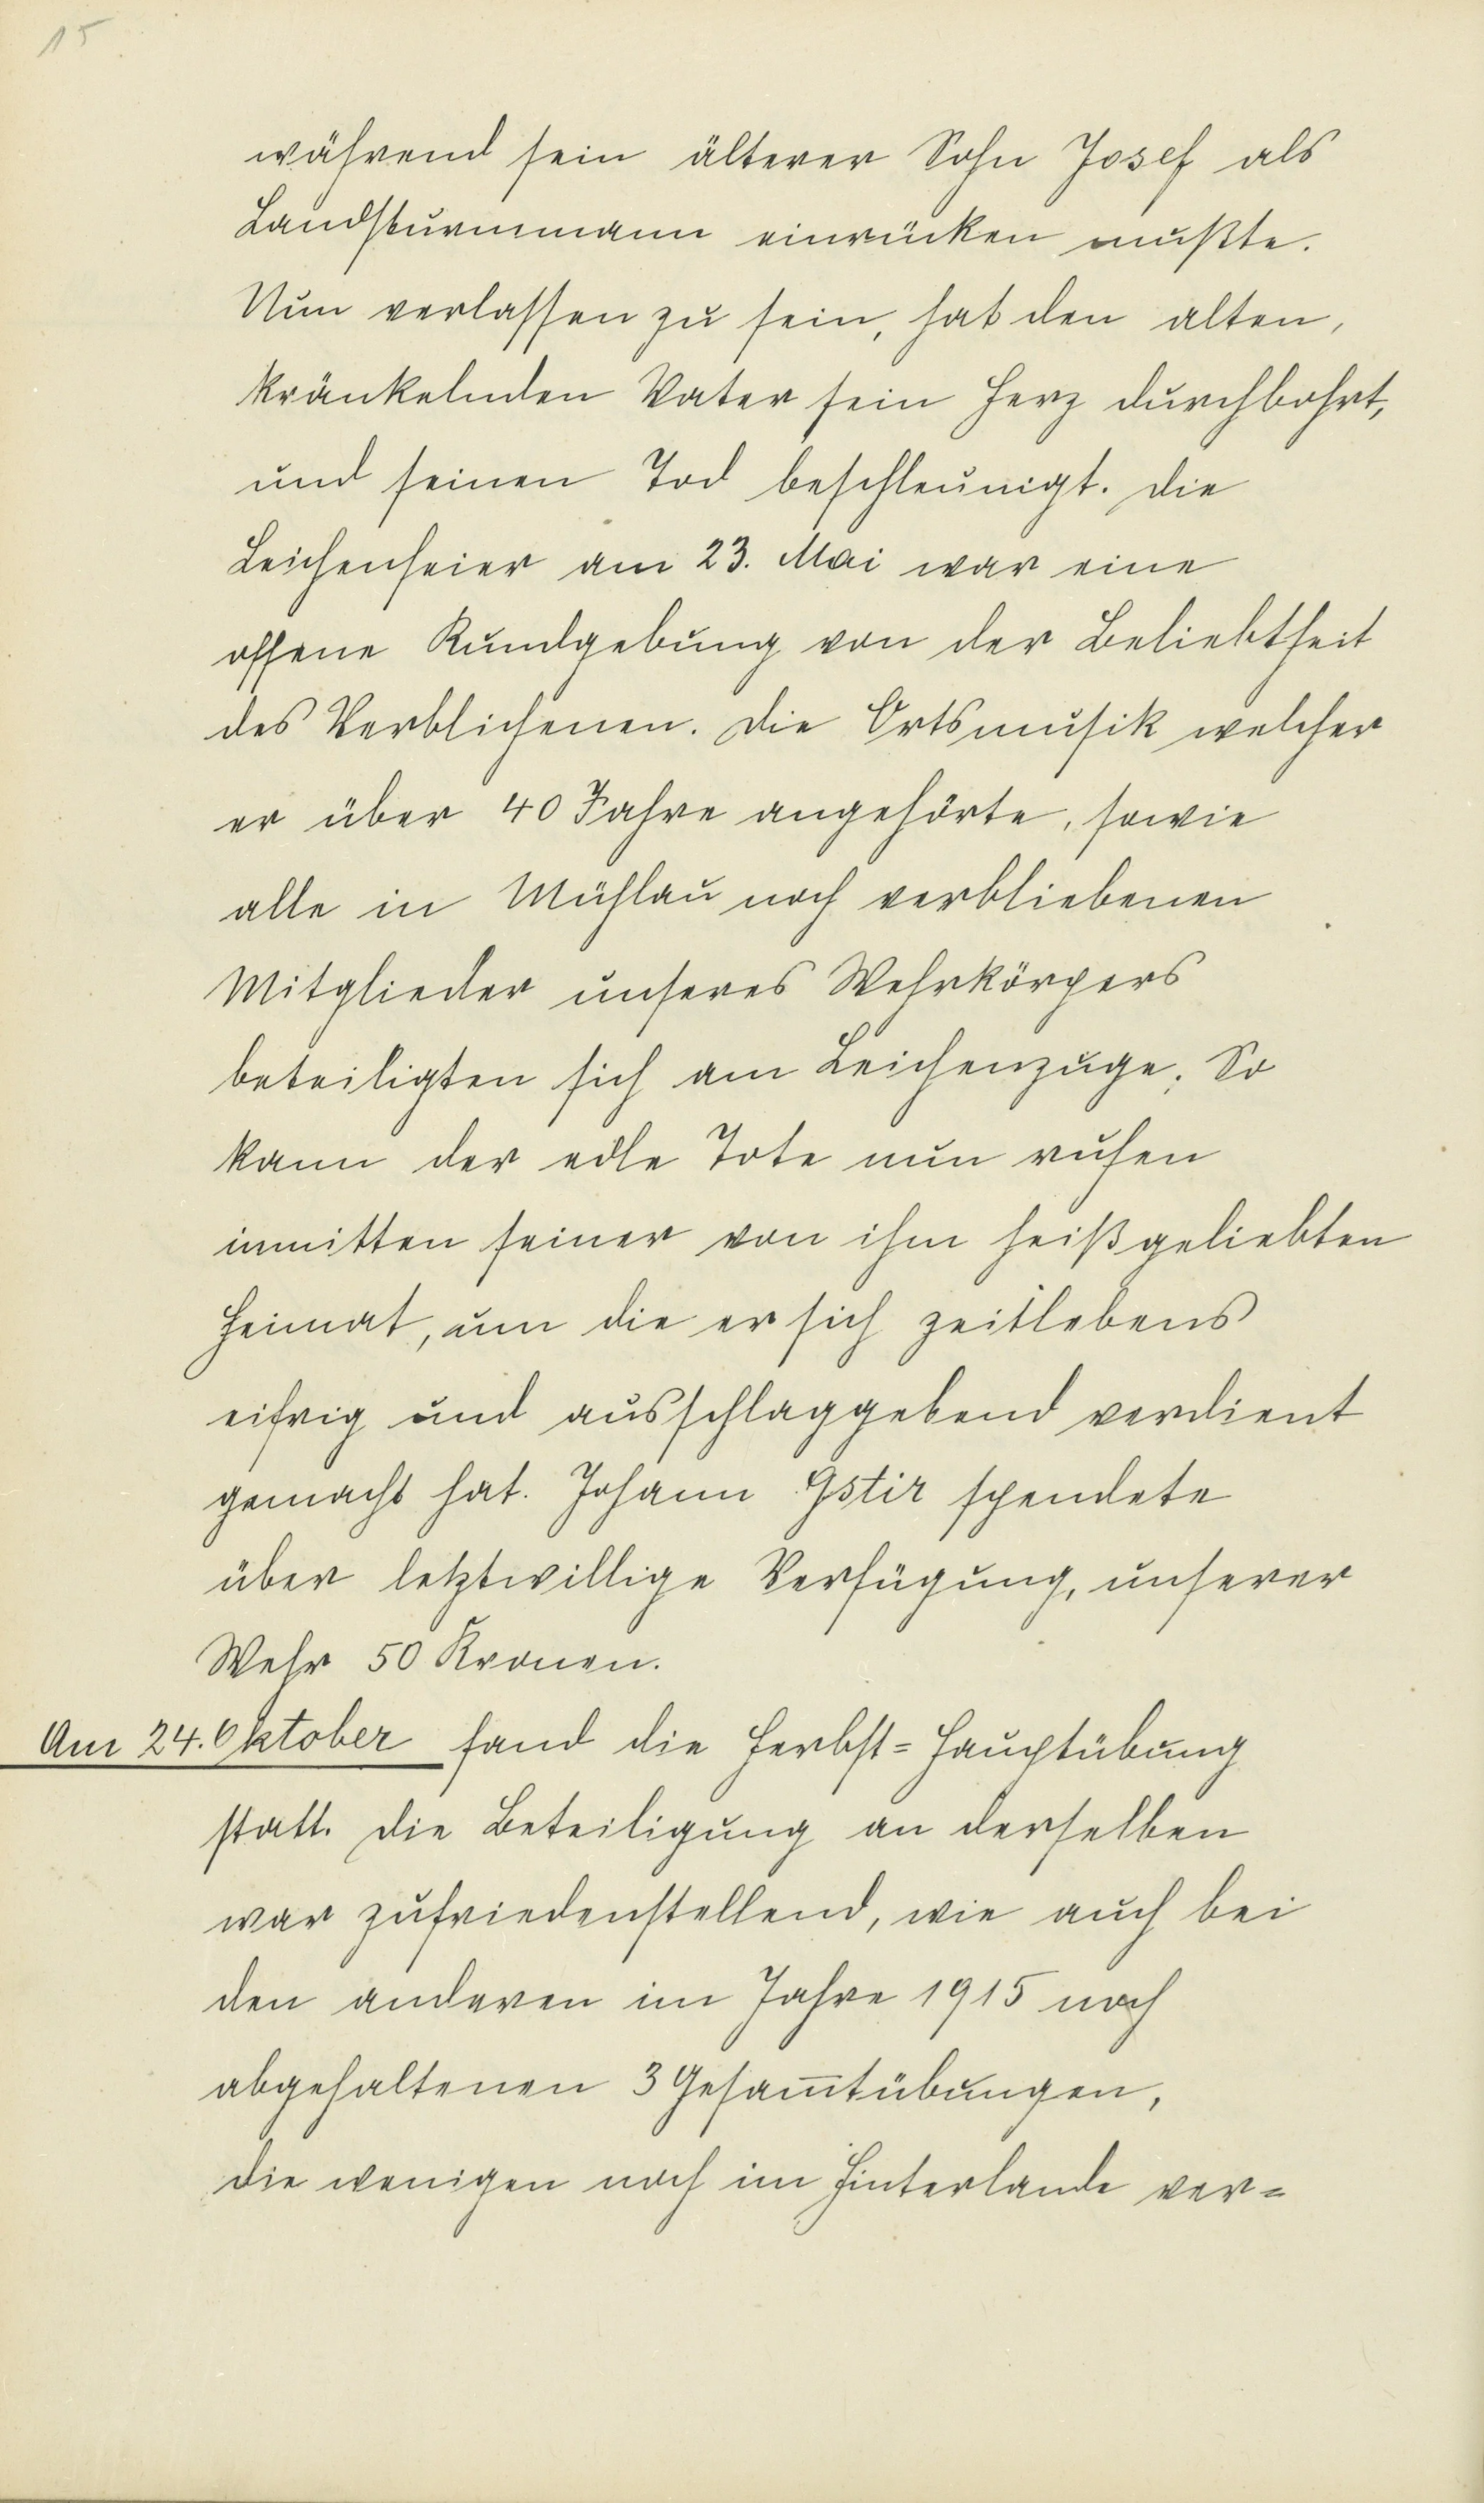 15
während sein älterer Sohn Josef als
Landsturmmann einrücken mußte.
Nun verlassen zu sein, hat den alten,
kränkelnden Vater sein Herz durchbohrt,
und seinen Tod beschleunigt. Die
Leichenfeier am 23. Mai war eine
offene Kundgebung von der Beliebtheit
des Verblichenen. Die Ortsmusik welcher
er über 40 Jahre angehörte, sowie
alle in Mühlau noch verbliebenen
Mitglieder unseres Wehrkörpers
beteiligten sich am Leichenzuge. So
kann der edle Tote nun ruhen
inmitten seiner von ihm heißgeliebten
Heimat, um die er sich zeitlebens
eifrig und ausschlaggebend verdient
gemacht hat. Johann Gstir spendete
über letztwillige Verfügung, unserer
Wehr 50 Kronen.
Am 24. Oktober fand die Herbst=Hauptübung
statt. Die Beteiligung an derselben
war zufriedenstellend, wie auch bei
den anderen im Jahre 1915 noch
abgehaltenen 3 Gesam̅tübungen,
die wenigen noch im Hinterlande ver=